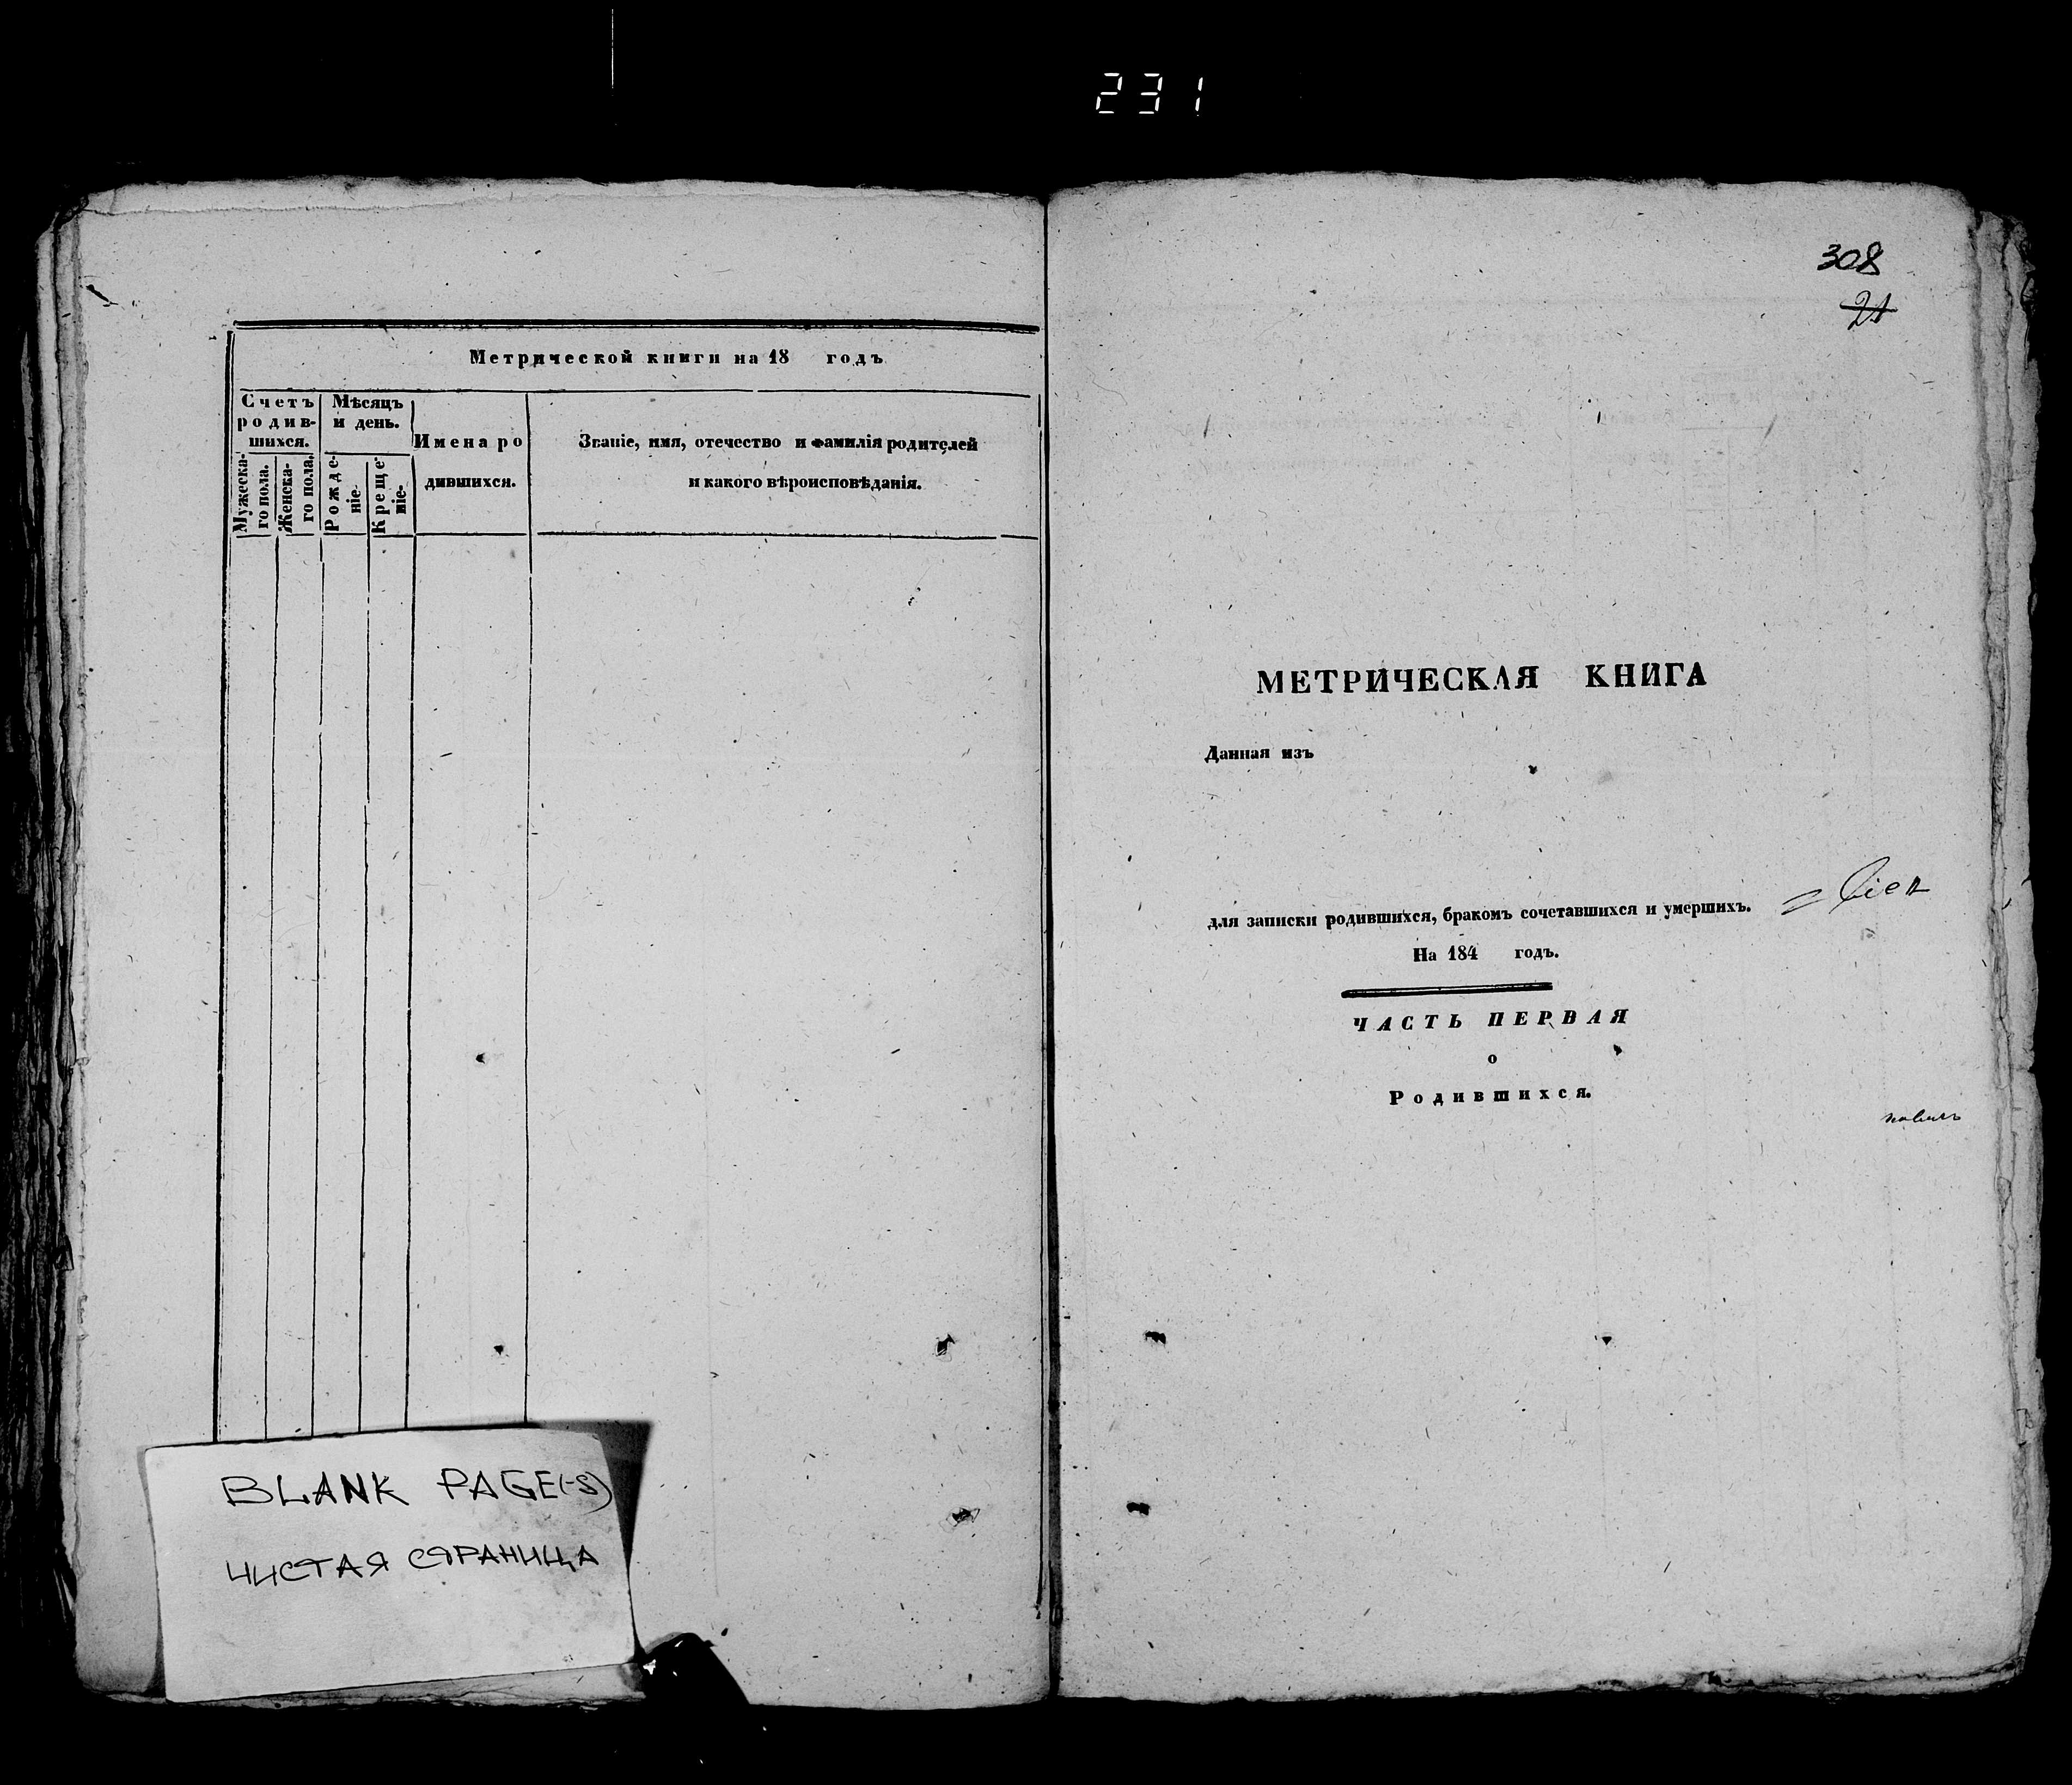 231
Метрической книги на 18 годъ
Счетъ родив-
шихся.
Мѣсяцъ
и день.
Мужеска-
го пола.
Женска-
го пола.
Рожде-
ніе-
Креще-
ніе-
Имена ро
дившихся.
Званіе, имя, отечество и фамилія родителей
и какого вѣроисповѣданія.
BLANK PAGE(-S)
ЧИСТАЯ СТРАНИЦА
308
21
МЕТРИЧЕСКАЯ КНИГА
Данная изъ
для записки родившихся, бракомъ сочетавшихся и умершихъ.
На 184 годъ.
ЧАСТЬ ПЕРВАЯ
о
Родившихся.